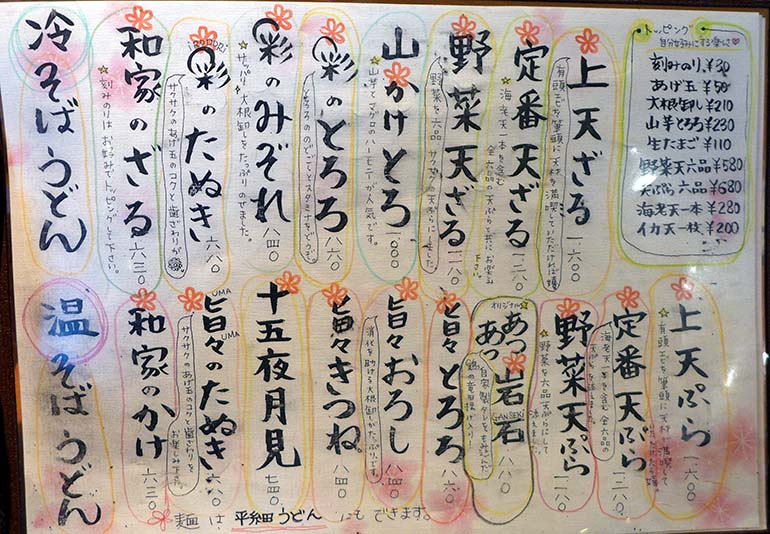 トッピング
自分好みにする楽しさ
刻みのり ¥30
あげ玉 ¥50
大根卸し ¥210
山芋とろろ ¥230
生たまご ¥110
野菜天六品 ¥580
天ぷら六品 ¥680
海老天一本 ¥280
イカ天一枚 ¥200
上天ざる
有頭エビを筆頭に天材を満喫していただければ嬉
一六〇〇
定番天ざる
海老天一本を含む全六品の天ぷらと共にお楽しみ下さい。
一二八〇
野菜天ざる
野菜を六品サクサクの天ぷらにしました。
一一八〇
山かけとろ
山芋とマグロのハーモニーが人気です。
一〇〇〇
彩のとろろ
とろろののどごしとスタミナをどうぞ。
八六〇
彩のみぞれ
サッパリ大根卸しをたっぷりのせました。
八四〇
IRODORI
彩のたぬき
サクサクのあげ玉のコクと歯ざわりが
六八〇
和家のざる
刻みのりはお好みでトッピングして下さい。
六三〇
冷そばうどん
上天ぷら
有頭エビを筆頭に天材が満喫して
一六〇〇
定番天ぷら
海老天一本を含む全六品の天ぷらを添えました。
一二八〇
野菜天ぷら
野菜を六品天ぷらにして添えました。
一一八〇
オリジナル
あつあつ岩石
GANSEKI
自家製タレをもみこんだ鶏の竜田揚げ入り!
八八〇
旨々とろろ
八六〇
旨々おろし
消化を助ける大根卸しがたっぷりです。
八四〇
旨々きつね
八四〇
十五夜月見
七四〇
UMA UMA
旨々のたぬき
サクサクのあげ玉のコクと歯ざわりをお楽しみ下さい。
六八〇
和家のかけ
六三〇
温そばうどん
麺は平細田うどんにもできます。